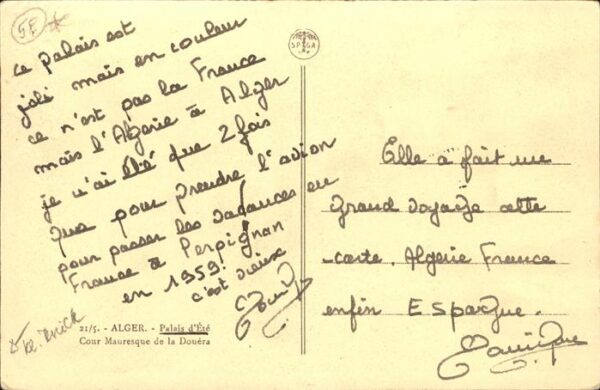 5F
ce palais est
joli mais en couleur
ce n'est pas la France
mais l'Algerie à Alger
je n'ai été que 2 fois
que pour prendre l'avion
pour passer les vacances en
France à Perpignan
en 1959.
c'est vieux
SPGA
Elle a fait une
Grand voyage cette
carte. Algerie France
enfin Espargne.
21/5. - ALGER. - Palais d'Été
Cour Mauresque de la Douëra